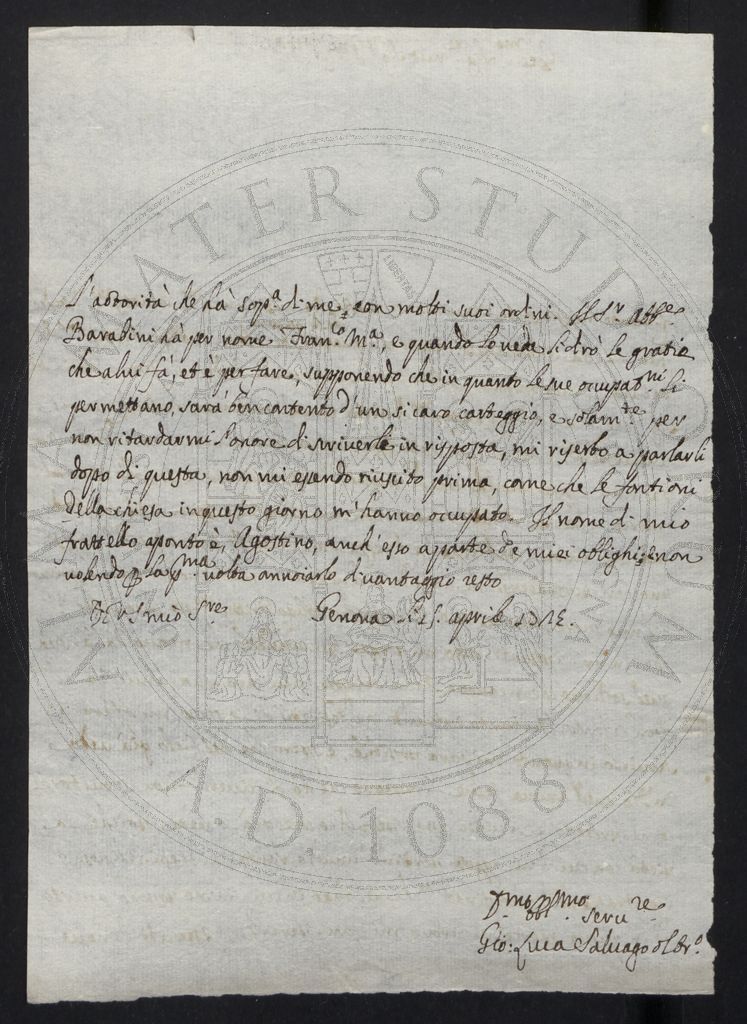 L'auttorità che hà sop.ª di me, con molti suoi ordini. Il S.r Abb.e
Barabini hà per nome Fran.co M.ª, e quando lo vedrò li dirò le gratie
che a lui fà, et è per fare, supponendo che in quanto le sue occupat.ni li
permettano, sarà ben contento d'un si caro carteggio, e solam.te per
non ritardarmi l'onore di scriverle in risposta, mi riserbo a parlarli
dopo di questa, non mi essendo riuscito prima, come che le fontioni
della chiesa in questo giorno m'hanno occupato. Il nome di mio
frattello aponto è, Agostino, anch'esso a parte de miei oblighi, e non
volendo p la p.ma volta annoiarlo di vantaggio resto
Di V S mio S.re Genova li 15. aprile
D.mo obbl.mo serv.re
Gio: Luca Salvago
ALMA MATER STUDIORUM
A.D. 1088